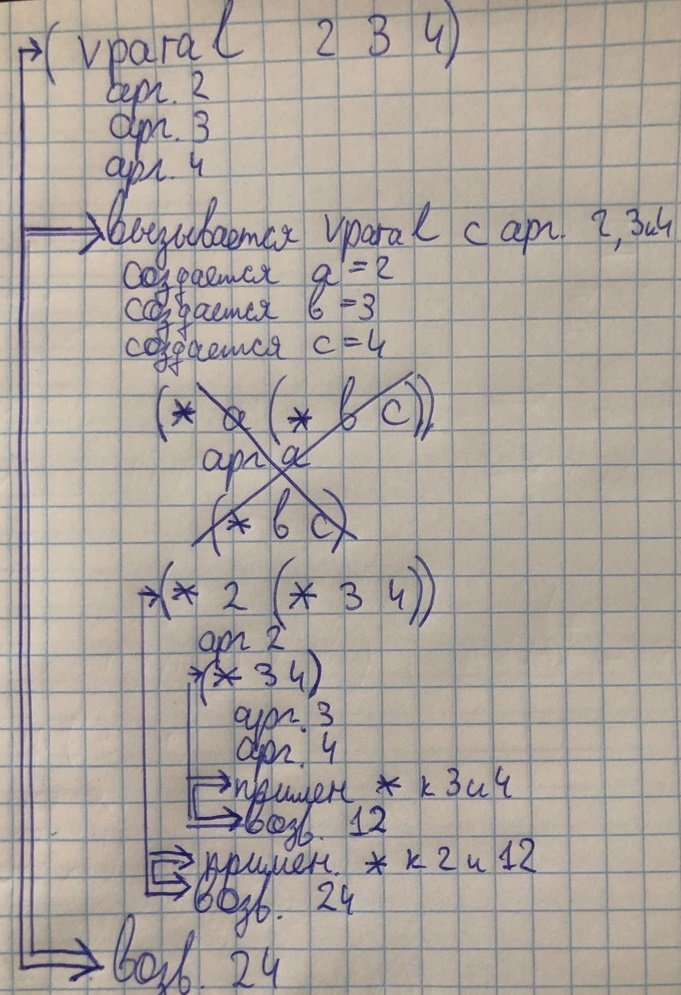 ( vparal 2 3 4)
арг. 2
арг. 3
арг. 4
вызывается vparal с арг. 2, 3 и 4
создается a = 2
создается b = 3
создается c = 4
(* a (* b c))
арг a
(* b c)
(* 2 (* 3 4))
арг 2
(* 3 4)
арг. 3
арг. 4
примен * к 3 и 4
возв. 12
примен. * к 2 и 12
возв. 24
возв. 24